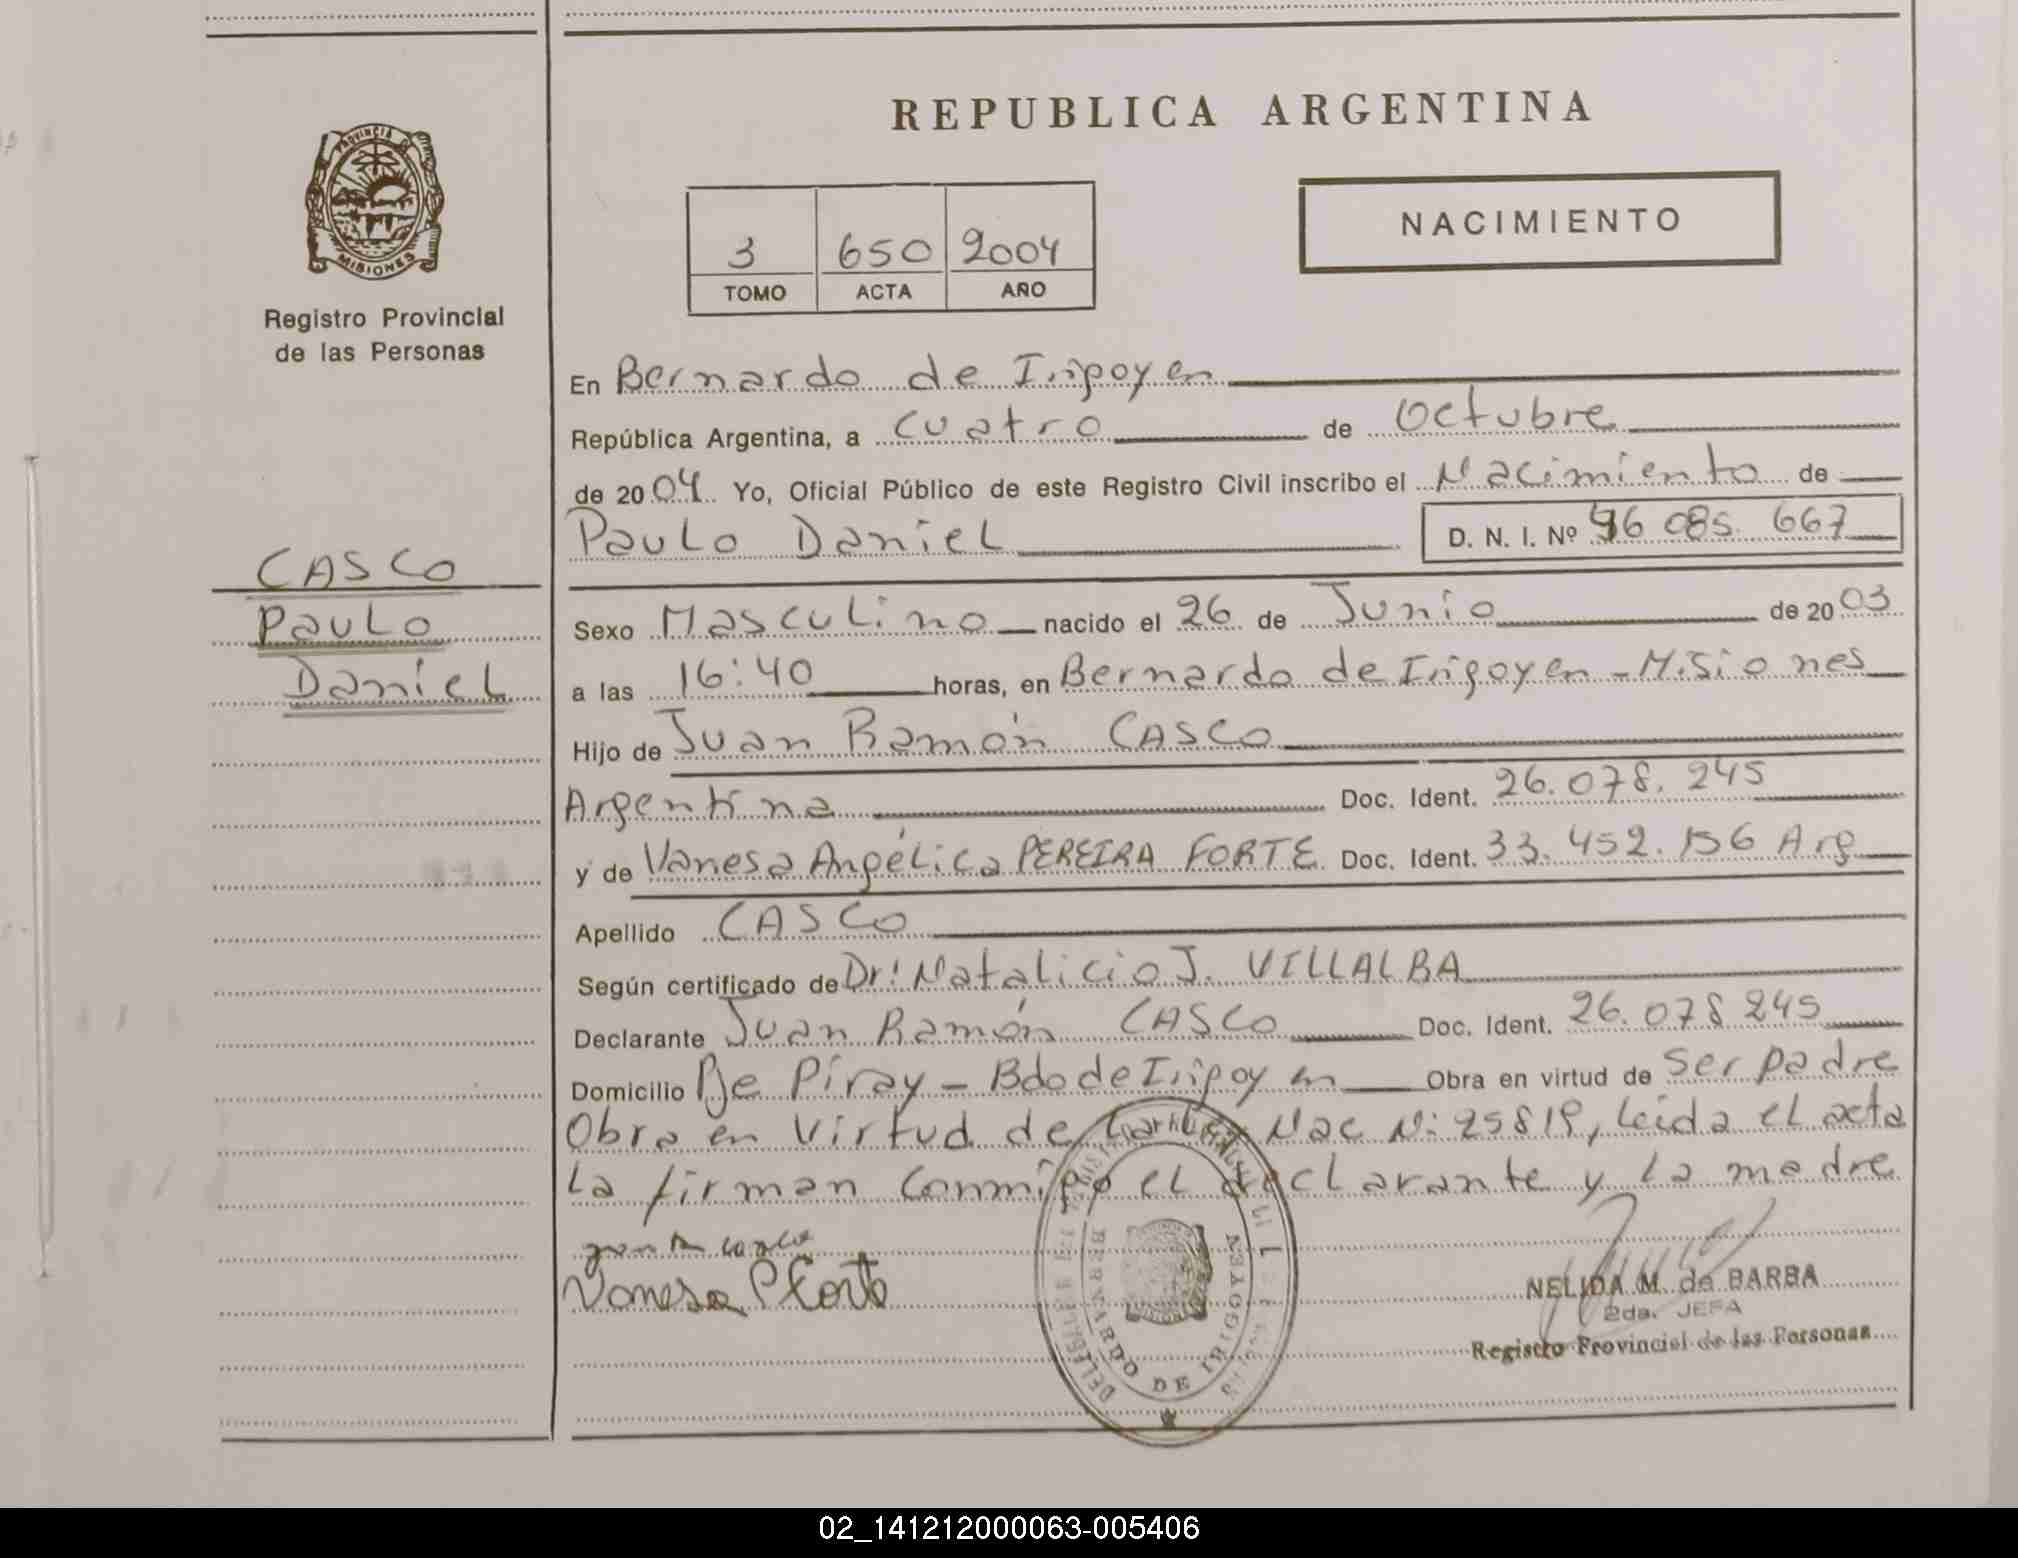 PROVINCIA
MISIONES
Registro Provincial
de las Personas
CASCO
Paulo
Daniel
REPUBLICA ARGENTINA
NACIMIENTO
3 650 2004
TOMO ACTA AÑO
En Bernardo de Irigoyen
República Argentina, a cuatro de Octubre
de 2004 Yo, Oficial Público de este Registro Civil inscribo el Nacimiento de
Paulo Daniel D. N. I. Nº 46 085. 667
Sexo Masculino nacido el 26 de Junio de 2003
a las 16:40 horas, en Bernardo de Irigoyen - Misiones
Hijo de Juan Ramón CASCO
Argentina Doc. Ident. 26.078.245
y de Vanesa Angélica PEREIRA FORTE Doc. Ident. 33.452.156 Arg
Apellido CASCO
Según certificado de Dr: Natalicio J. VILLALBA
Declarante Juan Ramón CASCO Doc. Ident. 26.078 245
Domicilio Pje Piray - Bdo de Irigoyen Obra en virtud de ser padre
Obra en virtud de Nac N: 25819, leida el acta
la firman conmigo el declarante y la madre
Vanesa P Forte
BERNARDO DE IRIGOYEN
NELIDA M. de BARBA
2da. JEFA
Registro Provincial de las Personas
02_141212000063-005406